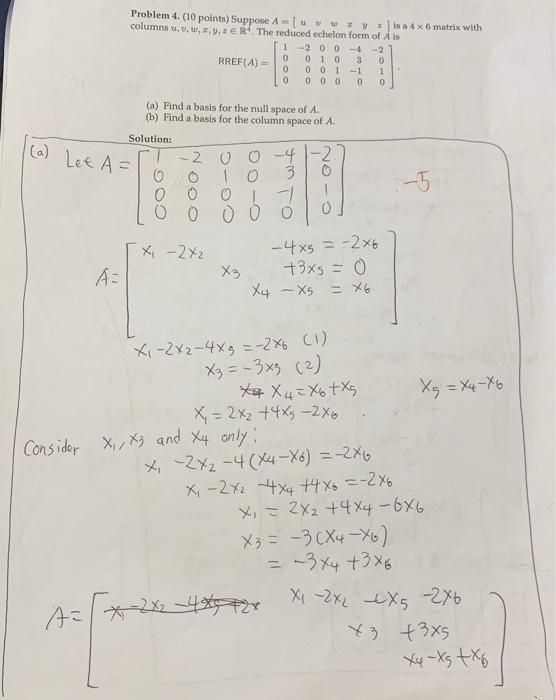 Problem 4. (10 points) Suppose A = [ u v w x y z ] is a 4 × 6 matrix with
columns u, v, w, x, y, z ∈ R⁴. The reduced echelon form of A is
RREF(A) = [
1 -2 0 0 -4 -2
0 0 1 0 3 0
0 0 0 1 -1 1
0 0 0 0 0 0
].
(a) Find a basis for the null space of A.
(b) Find a basis for the column space of A.
Solution:
(a) Let A = [
1 -2 0 0 -4 | -2
0 0 1 0 3 | 0
0 0 0 1 -1 | 1
0 0 0 0 0 | 0
]
-5
A = [
x₁ -2x₂ -4x₅ = -2x₆
x₃ +3x₅ = 0
x₄ - x₅ = x₆
]
x₁-2x₂-4x₅ = -2x₆ (1)
x₃ = -3x₅ (2)
x₄ = x₆+x₅ x₅ = x₄-x₆
x₁ = 2x₂ +4x₅ -2x₆
Consider x₁, x₃ and x₄ only:
x₁ -2x₂ -4(x₄-x₆) = -2x₆
x₁ -2x₂ -4x₄ +4x₆ = -2x₆
x₁ = 2x₂ +4x₄ -6x₆
x₃ = -3(x₄-x₆)
= -3x₄ +3x₆
A = [
x₁ -2x₂ -4x₅ -2x₆
x₃ +3x₅
x₄-x₅+x₆
]